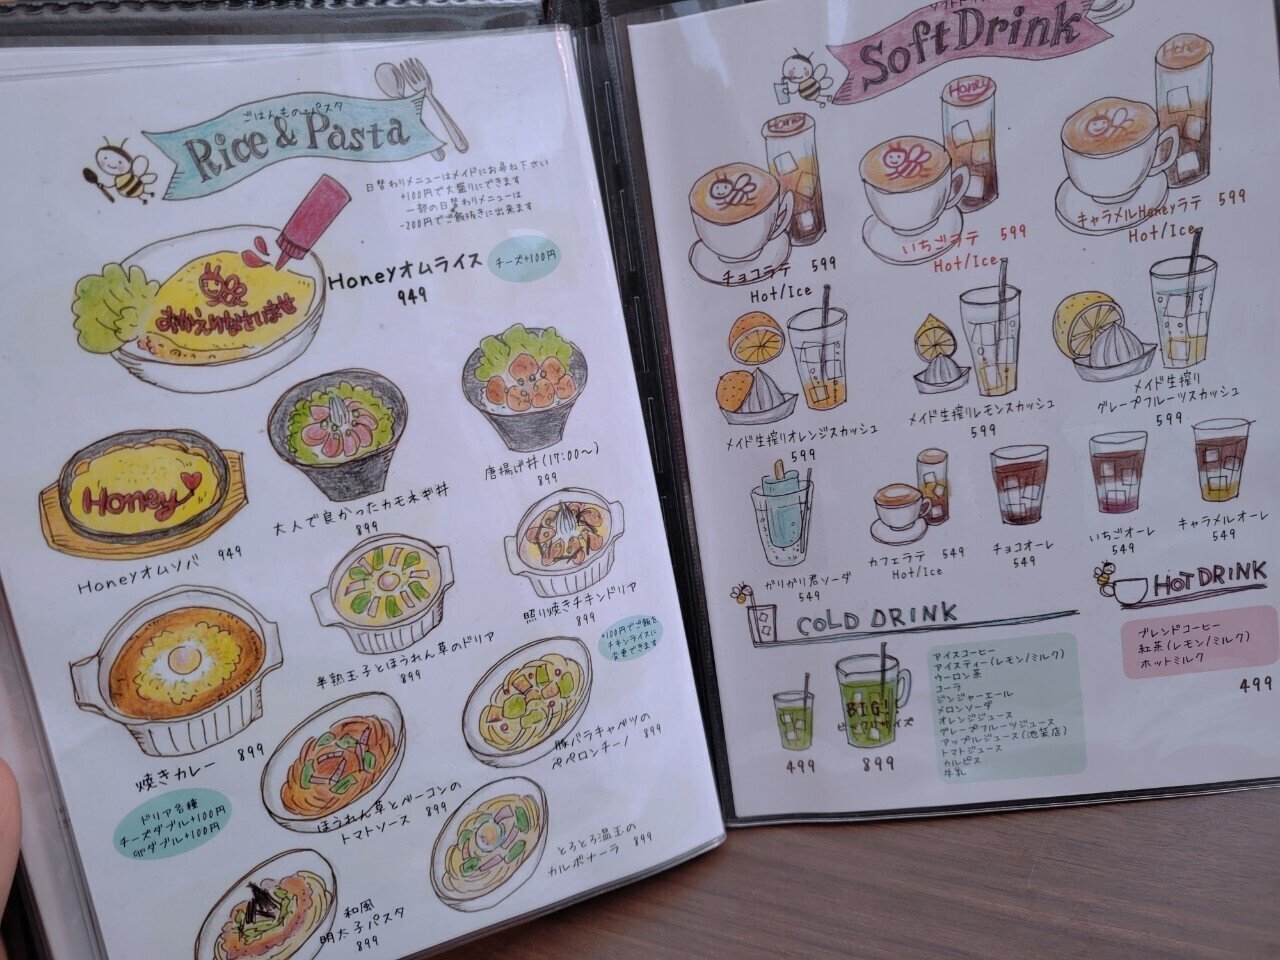 ごはんもの・パスタ
Rice & Pasta
日替わりメニューはメイドにお尋ね下さい
+100円で大盛りにできます
一部の日替わりメニューは
-200円でご飯抜きに出来ます
おかえりなさいませ
Honeyオムライス
949
チーズ+100円
Honey
Honeyオムソバ 949
大人で良かったカモネギ丼
899
唐揚げ丼(17:00~)
899
焼きカレー 899
半熟玉子とほうれん草のドリア
899
照り焼きチキンドリア
899
+100円でご飯を
チキンライスに
変更できます
ドリア各種
チーズダブル+100円
卵ダブル+100円
ほうれん草とベーコンの
トマトソース 899
豚バラキャベツの
ペペロンチーノ 899
和風
明太子パスタ
899
とろとろ温玉の
カルボナーラ 899
Soft Drink
Honey
Honey
Honey
チョコラテ 599
Hot/Ice
いちごラテ 599
Hot/Ice
キャラメルHoneyラテ 599
Hot/Ice
メイド生搾りオレンジスカッシュ
599
メイド生搾りレモンスカッシュ
599
メイド生搾り
グレープフルーツスカッシュ
599
ガリガリ君ソーダ
549
カフェラテ 549
Hot/Ice
チョコオーレ
549
いちごオーレ
549
キャラメルオーレ
549
COLD DRINK
499
BIG!
ビックリサイズ
899
アイスコーヒー
アイスティー(レモン/ミルク)
ウーロン茶
コーラ
ジンジャーエール
メロンソーダ
オレンジジュース
グレープフルーツジュース
アップルジュース(池袋店)
トマトジュース
カルピス
牛乳
HOT DRINK
ブレンドコーヒー
紅茶(レモン/ミルク)
ホットミルク
499